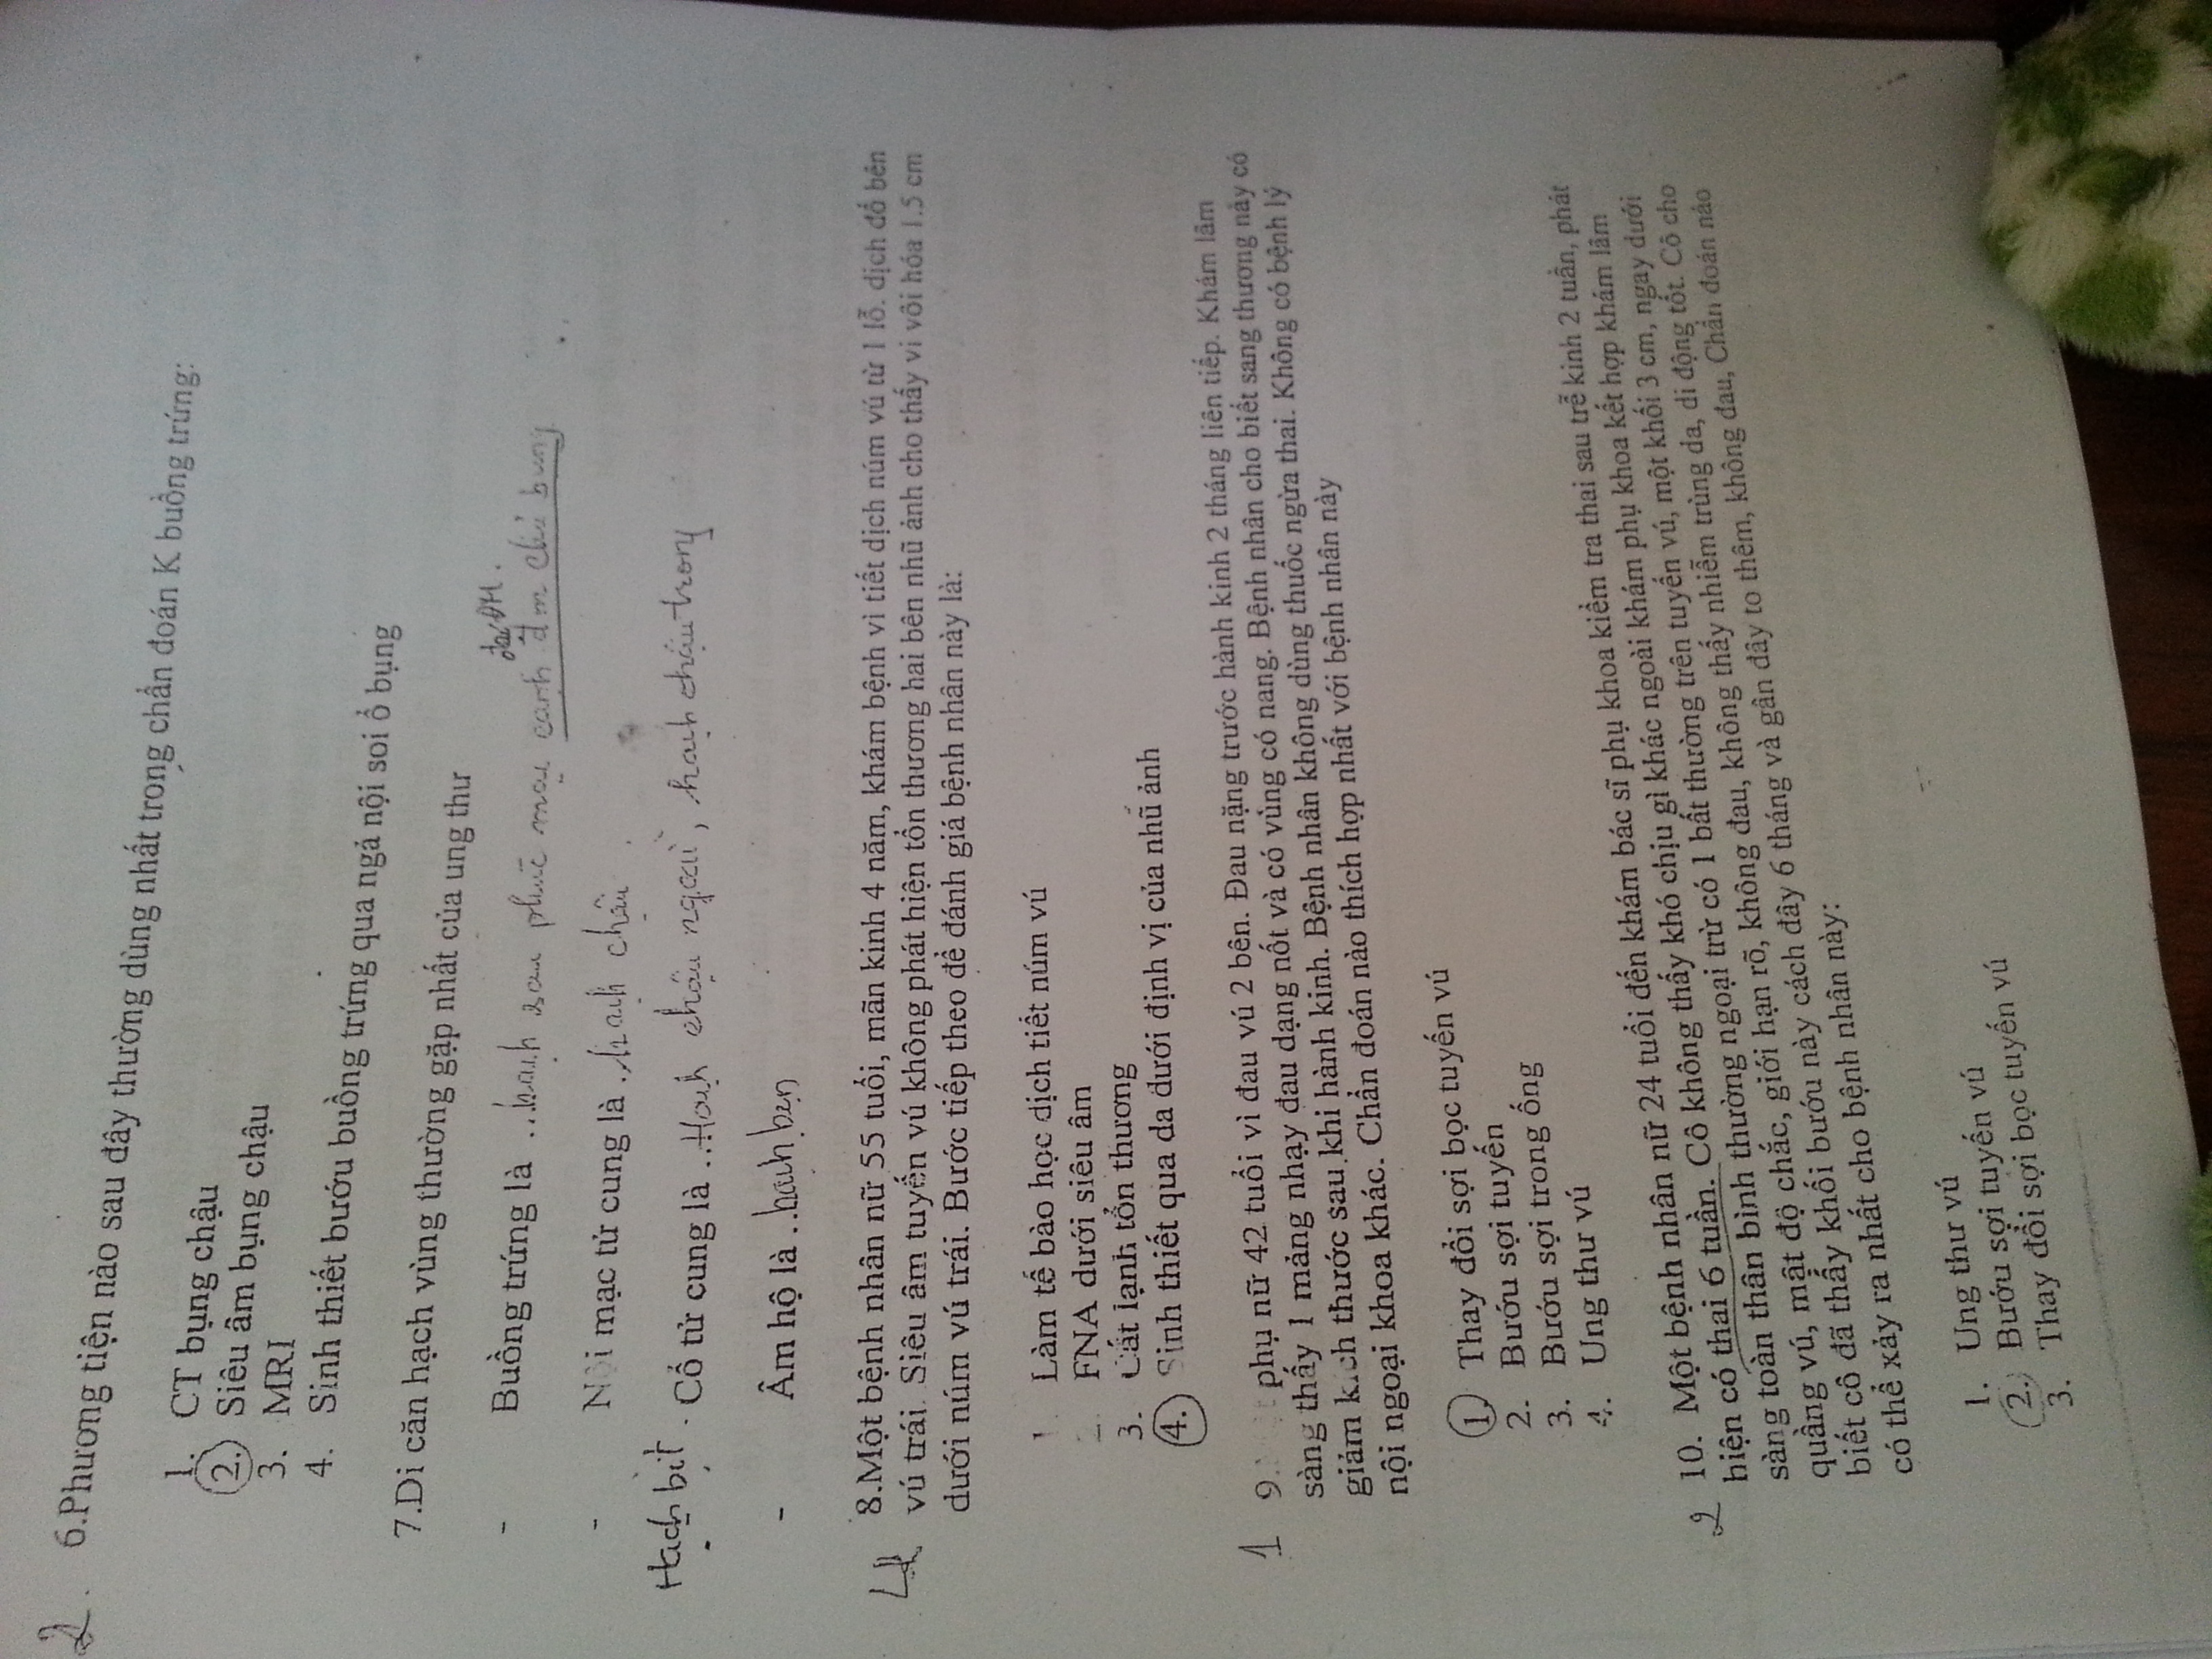 2. 6.Phương tiện nào sau đây thường dùng nhất trong chẩn đoán K buồng trứng:
1. CT bụng chậu
2. Siêu âm bụng chậu
3. MRI
4. Sinh thiết bướu buồng trứng qua ngả nội soi ổ bụng
7.Di căn hạch vùng thường gặp nhất của ung thư
ĐM.
- Buồng trứng là ..hạch sau phúc mạc cạnh đm chủ bụng
- Nội mạc tử cung là ..hạch chậu
Hạch bịt. Cổ tử cung là ..Hạch chậu ngoài, hạch chậu trong
- Âm hộ là ..hạch bẹn
4 8.Một bệnh nhân nữ 55 tuổi, mãn kinh 4 năm, khám bệnh vì tiết dịch núm vú từ 1 lỗ. dịch đỏ bên
vú trái. Siêu âm tuyến vú không phát hiện tổn thương hai bên nhũ ảnh cho thấy vi vôi hóa 1.5 cm
dưới núm vú trái. Bước tiếp theo để đánh giá bệnh nhân này là:
1. Làm tế bào học dịch tiết núm vú
2. FNA dưới siêu âm
3. Cắt lạnh tổn thương
4. Sinh thiết qua da dưới định vị của nhũ ảnh
1 9. phụ nữ 42 tuổi vì đau vú 2 bên. Đau nặng trước hành kinh 2 tháng liên tiếp. Khám lâm
sàng thấy 1 mảng nhạy đau dạng nốt và có vùng có nang. Bệnh nhân cho biết sang thương này có
giảm kích thước sau khi hành kinh. Bệnh nhân không dùng thuốc ngừa thai. Không có bệnh lý
nội ngoại khoa khác. Chẩn đoán nào thích hợp nhất với bệnh nhân này
1. Thay đổi sợi bọc tuyến vú
2. Bướu sợi tuyến
3. Bướu sợi trong ống
4. Ung thư vú
2 10. Một bệnh nhân nữ 24 tuổi đến khám bác sĩ phụ khoa kiểm tra thai sau trễ kinh 2 tuần, phát
hiện có thai 6 tuần. Cô không thấy khó chịu gì khác ngoài khám phụ khoa kết hợp khám lâm
sàng toàn thân bình thường ngoại trừ có 1 bất thường trên tuyến vú, một khối 3 cm, ngay dưới
quầng vú, mật độ chắc, giới hạn rõ, không đau, không thấy nhiễm trùng da, di động tốt. Cô cho
biết cô đã thấy khối bướu này cách đây 6 tháng và gần đây to thêm, không đau, Chẩn đoán nào
có thể xảy ra nhất cho bệnh nhân này:
1. Ung thư vú
2. Bướu sợi tuyến vú
3. Thay đổi sợi bọc tuyến vú